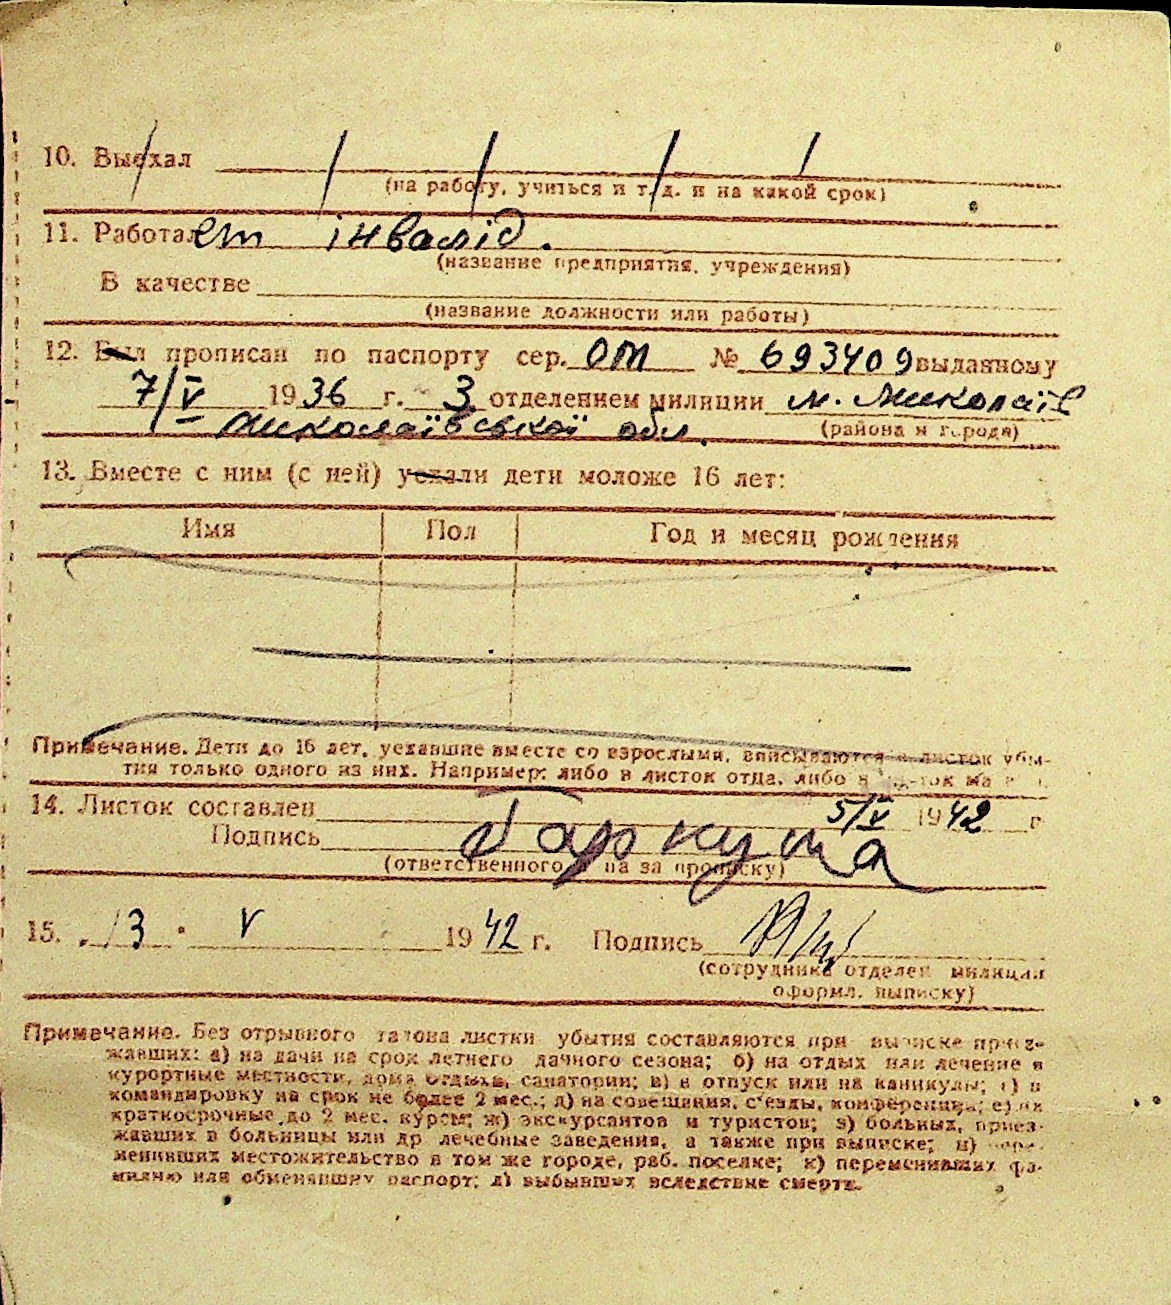 10. Выехал
(на работу, учиться и т. д. и на какой срок)
11. Работает інвалід.
(название предприятия, учреждения)
В качестве
(название должности или работы)
12. Был прописан по паспорту сер. ОМ № 693409 выданному
7/V 1936 г. 3 отделением милиции м. Миколаїв
Миколаївської обл. (района и города)
13. Вместе с ним (с ней) уехали дети моложе 16 лет:
Имя Пол Год и месяц рождения
Примечание. Дети до 16 лет, уехавшие вместе со взрослыми, вписываются в листок убы-
тия только одного из них. Например: либо в листок отца, либо в листок
14. Листок составлен 5/V 1942 г
Подпись Баркута
(ответственного за прописку)
15. 13. V 1942 г. Подпись
(сотрудника отделен. милиции
оформл. выписку)
Примечание. Без отрывного талона листки убытия составляются при выписке приез-
жавших: а) на дачи на срок летнего дачного сезона; б) на отдых или лечение в
курортные местности, дома отдыха, санатории; в) в отпуск или на каникулы; г) в
командировку на срок не более 2 мес.; д) на совещания, с'езды, конференции; е) на
краткосрочные до 2 мес. курсы; ж) экскурсантов и туристов; з) больных, приез-
жавших в больницы или др лечебные заведения, а также при выписке; и) пере-
менивших местожительство в том же городе, раб. поселке; к) переменивших фа-
милию или обменявших паспорт; л) выбывших вследствие смерти.